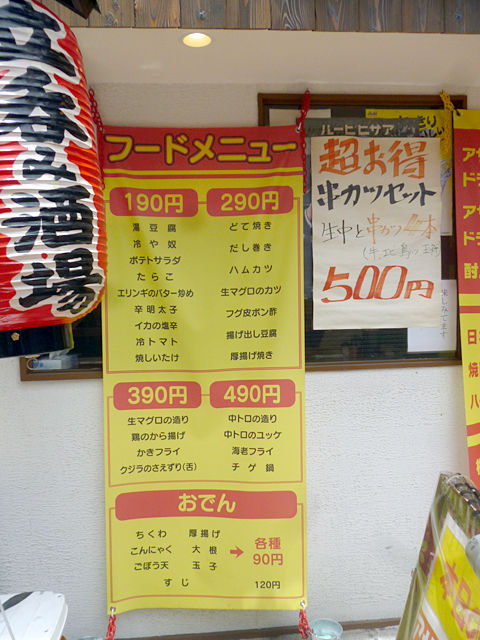 立呑み酒場
フードメニュー
190円
湯豆腐
冷や奴
ポテトサラダ
たらこ
エリンギのバター炒め
辛明太子
イカの塩辛
冷トマト
焼しいたけ
290円
どて焼き
だし巻き
ハムカツ
生マグロのカツ
フグ皮ポン酢
揚げ出し豆腐
厚揚げ焼き
390円
生マグロの造り
鶏のから揚げ
かきフライ
クジラのさえずり(舌)
490円
中トロの造り
中トロのユッケ
海老フライ
チゲ鍋
おでん
ちくわ 厚揚げ
こんにゃく 大根
ごぼう天 玉子
→ 各種
90円
すじ 120円
超お得
串カツセット
生中と串カツ4本
500円